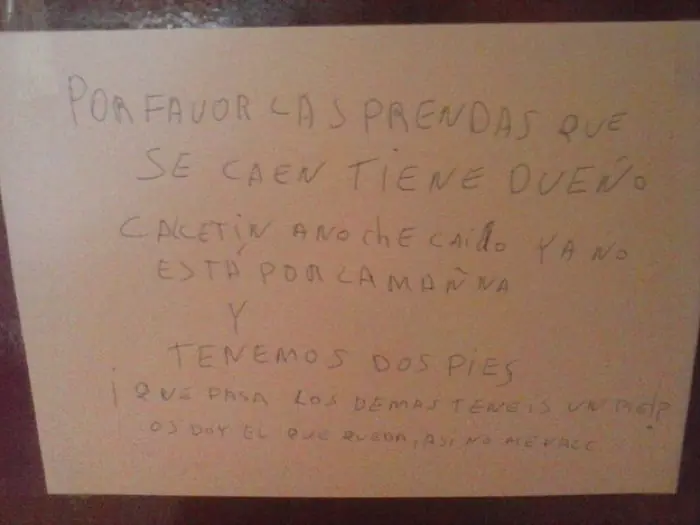 POR FAVOR LAS PRENDAS QUE
SE CAEN TIENE DUEÑO
CALCETÍN ANOCHE CAIdo YA NO
ESTÁ POR LA MAÑNA
Y
TENEMOS DOS PIES
¡QUE PASA LOS DEMAS TENEIS UN PIE!?
OS DOY EL QUE QUEDA, ASI NO ME VALE